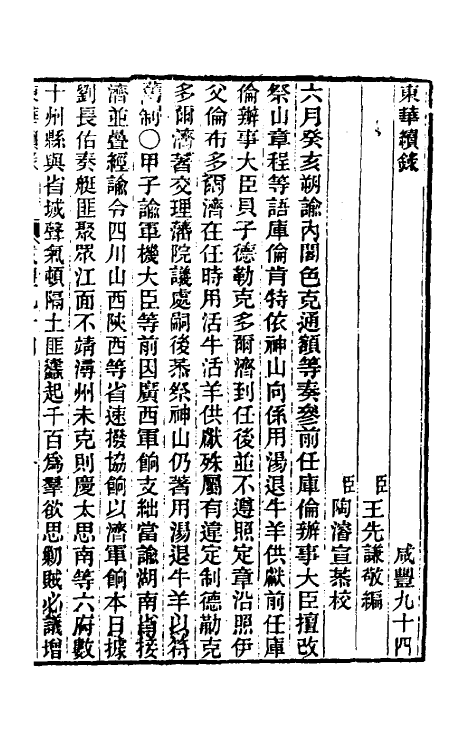 東華續錄　咸豐九十四
臣王先謙敬編
臣陶濬宣恭校
六月癸亥朔諭內閣色克通額等奏參前任庫倫辦事大臣擅改
祭山章程等語庫倫肯特依神山向係用湯退牛羊供獻前任庫
倫辦事大臣貝子德勒克多爾濟到任後並不遵照定章沿照伊
父倫布多爾濟在任時用活牛活羊供獻殊屬有違定制德勒克
多爾濟著交理藩院議處嗣後恭祭神山仍著用湯退牛羊以符
舊制〇甲子諭軍機大臣等前因廣西軍餉支絀當諭湖南接
濟並疊經諭令四川山西陝西等省速撥協餉以濟軍餉本日據
劉長佑奏艇匪聚眾江面不靖潯州未克則慶太思南等六府數
十州縣與省城聲氣頓隔土匪蠭起千百爲羣欲思勦賊必議增